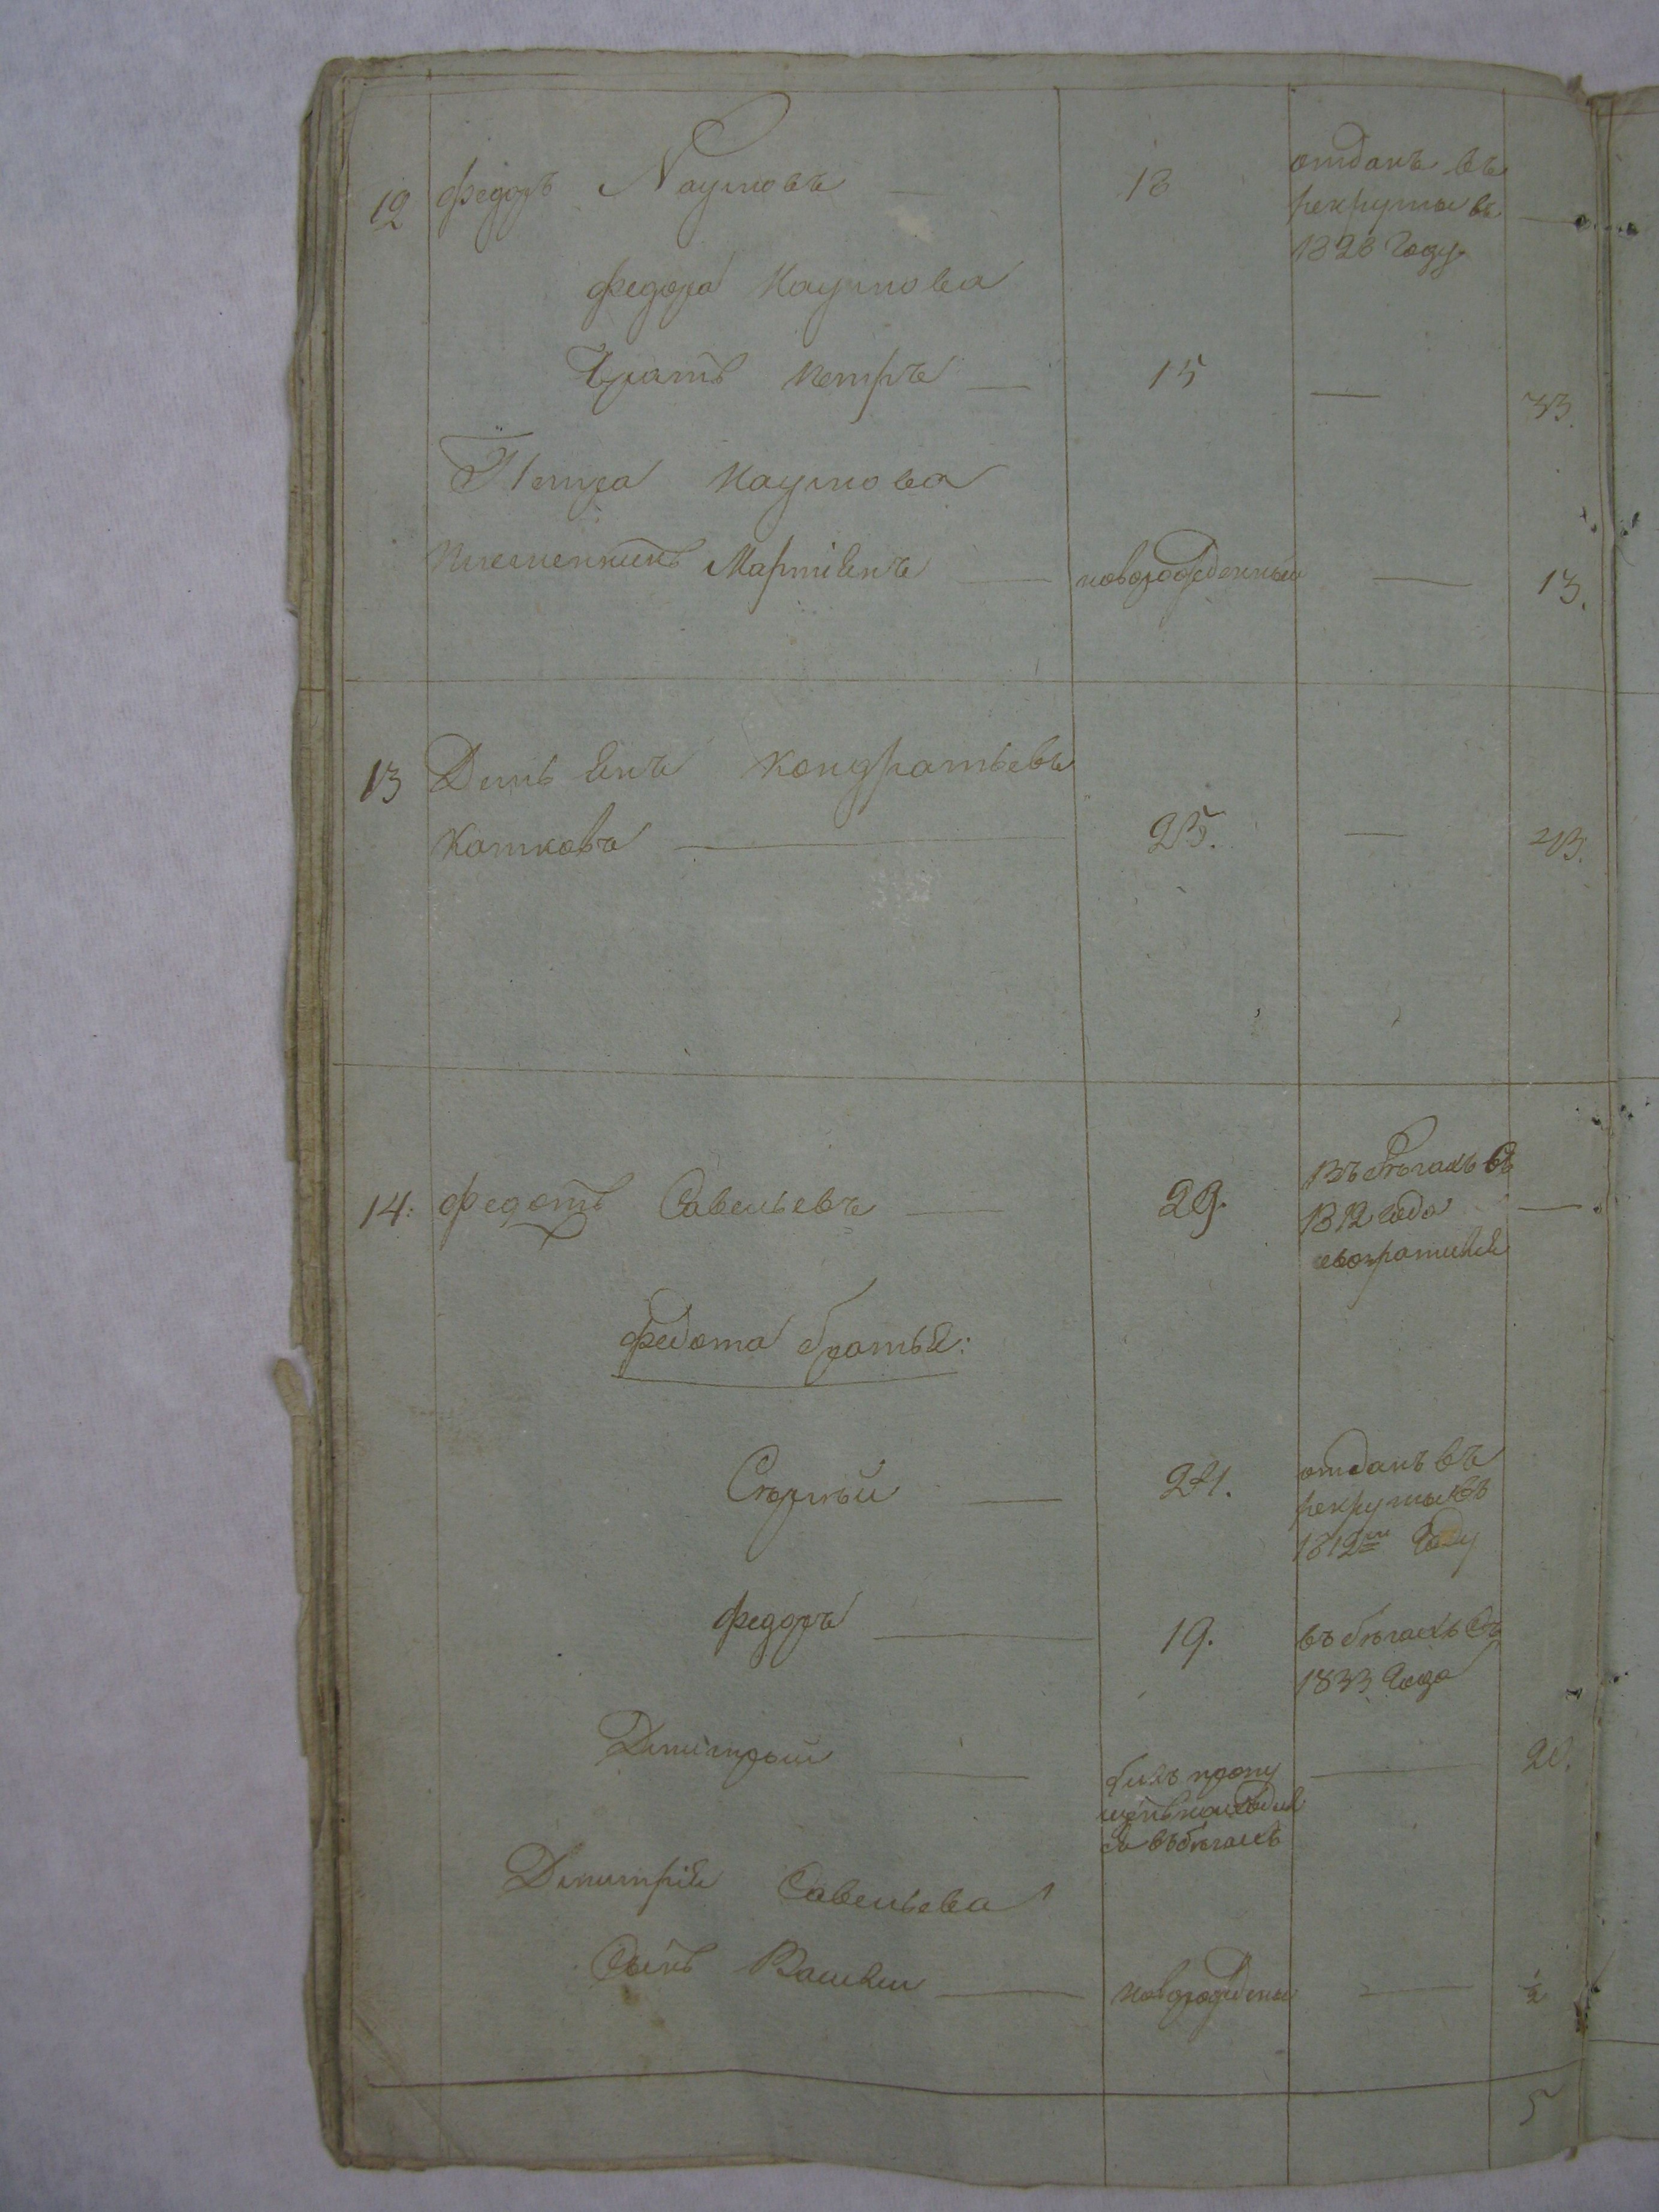 12 Федоръ Наумовъ — 18 отданъ въ
рекруты въ —
1828 году
Федора Наумова
братъ Петръ — 15 — 33.
Петра Наумова
племенникъ Мартиянъ — новорожденный — 13.
13 Демьянъ Кондратьевъ
Катковъ — 25. — 43.
14: Федотъ Савельевъ — 29. въ бѣгахъ съ
1812 года —
Федота братья:
Сергѣй — 24. отданъ въ
рекруты въ
1812м году
Федоръ — 19. въ бѣгахъ съ
1833 года
Дмитрий — былъ пропу — 20.
щенъ
въ бѣгахъ
Дмитрия Савельева
сынъ — новорожденый — ½
5